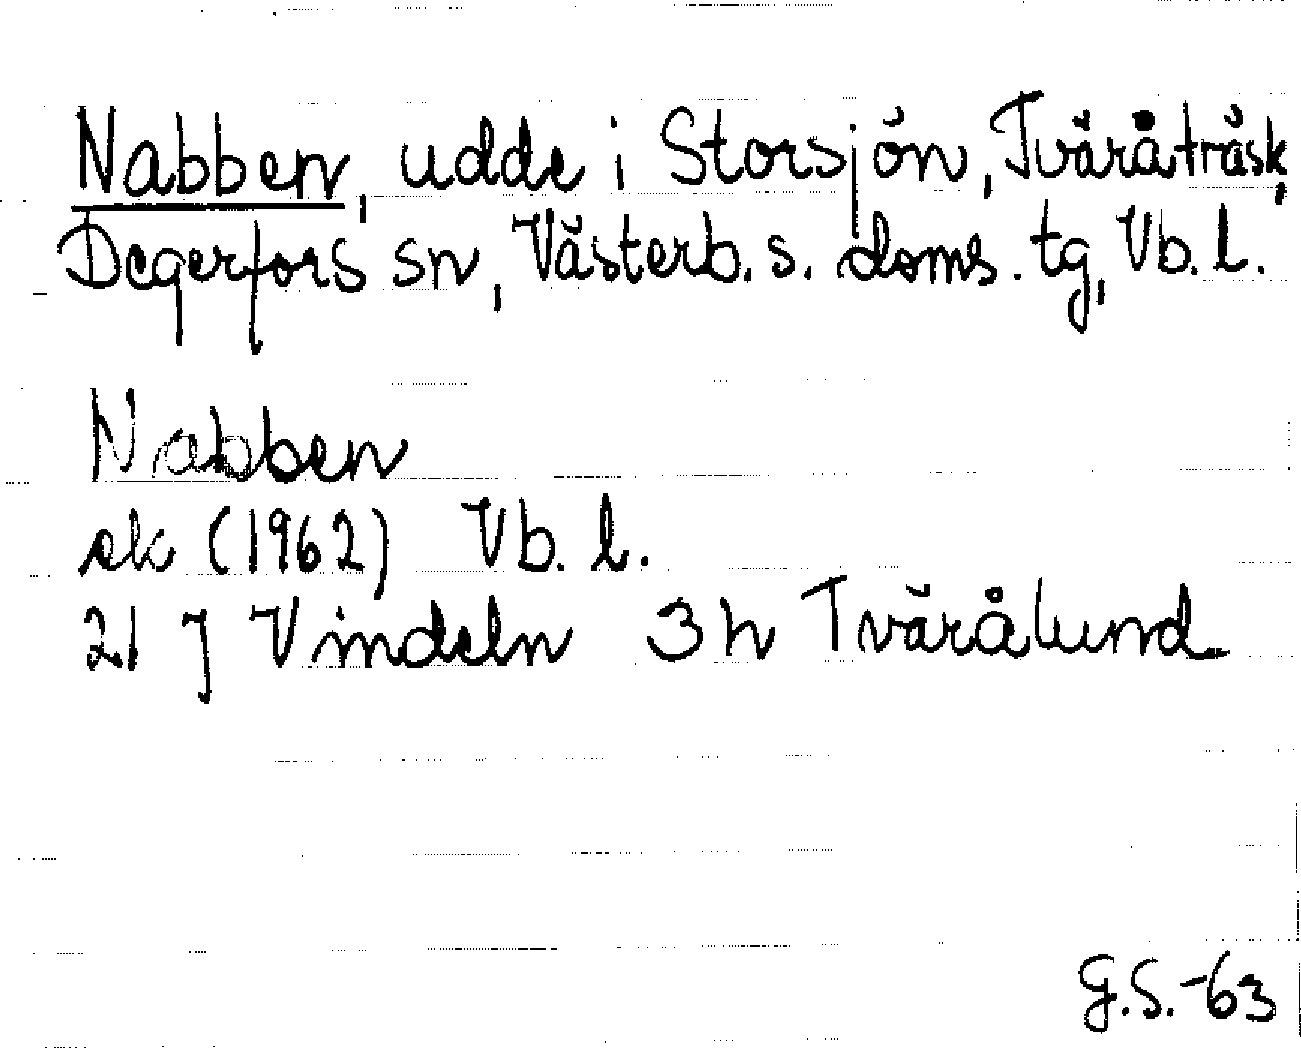 Nabben, udde i Storsjön, Tväråträsk,
Degerfors sn, Västerb. s. doms. tg, Vb. l.
Nabben
ek (1962) Vb. l.
21 J Vindeln 3 h Tvärålund
G.S.-63